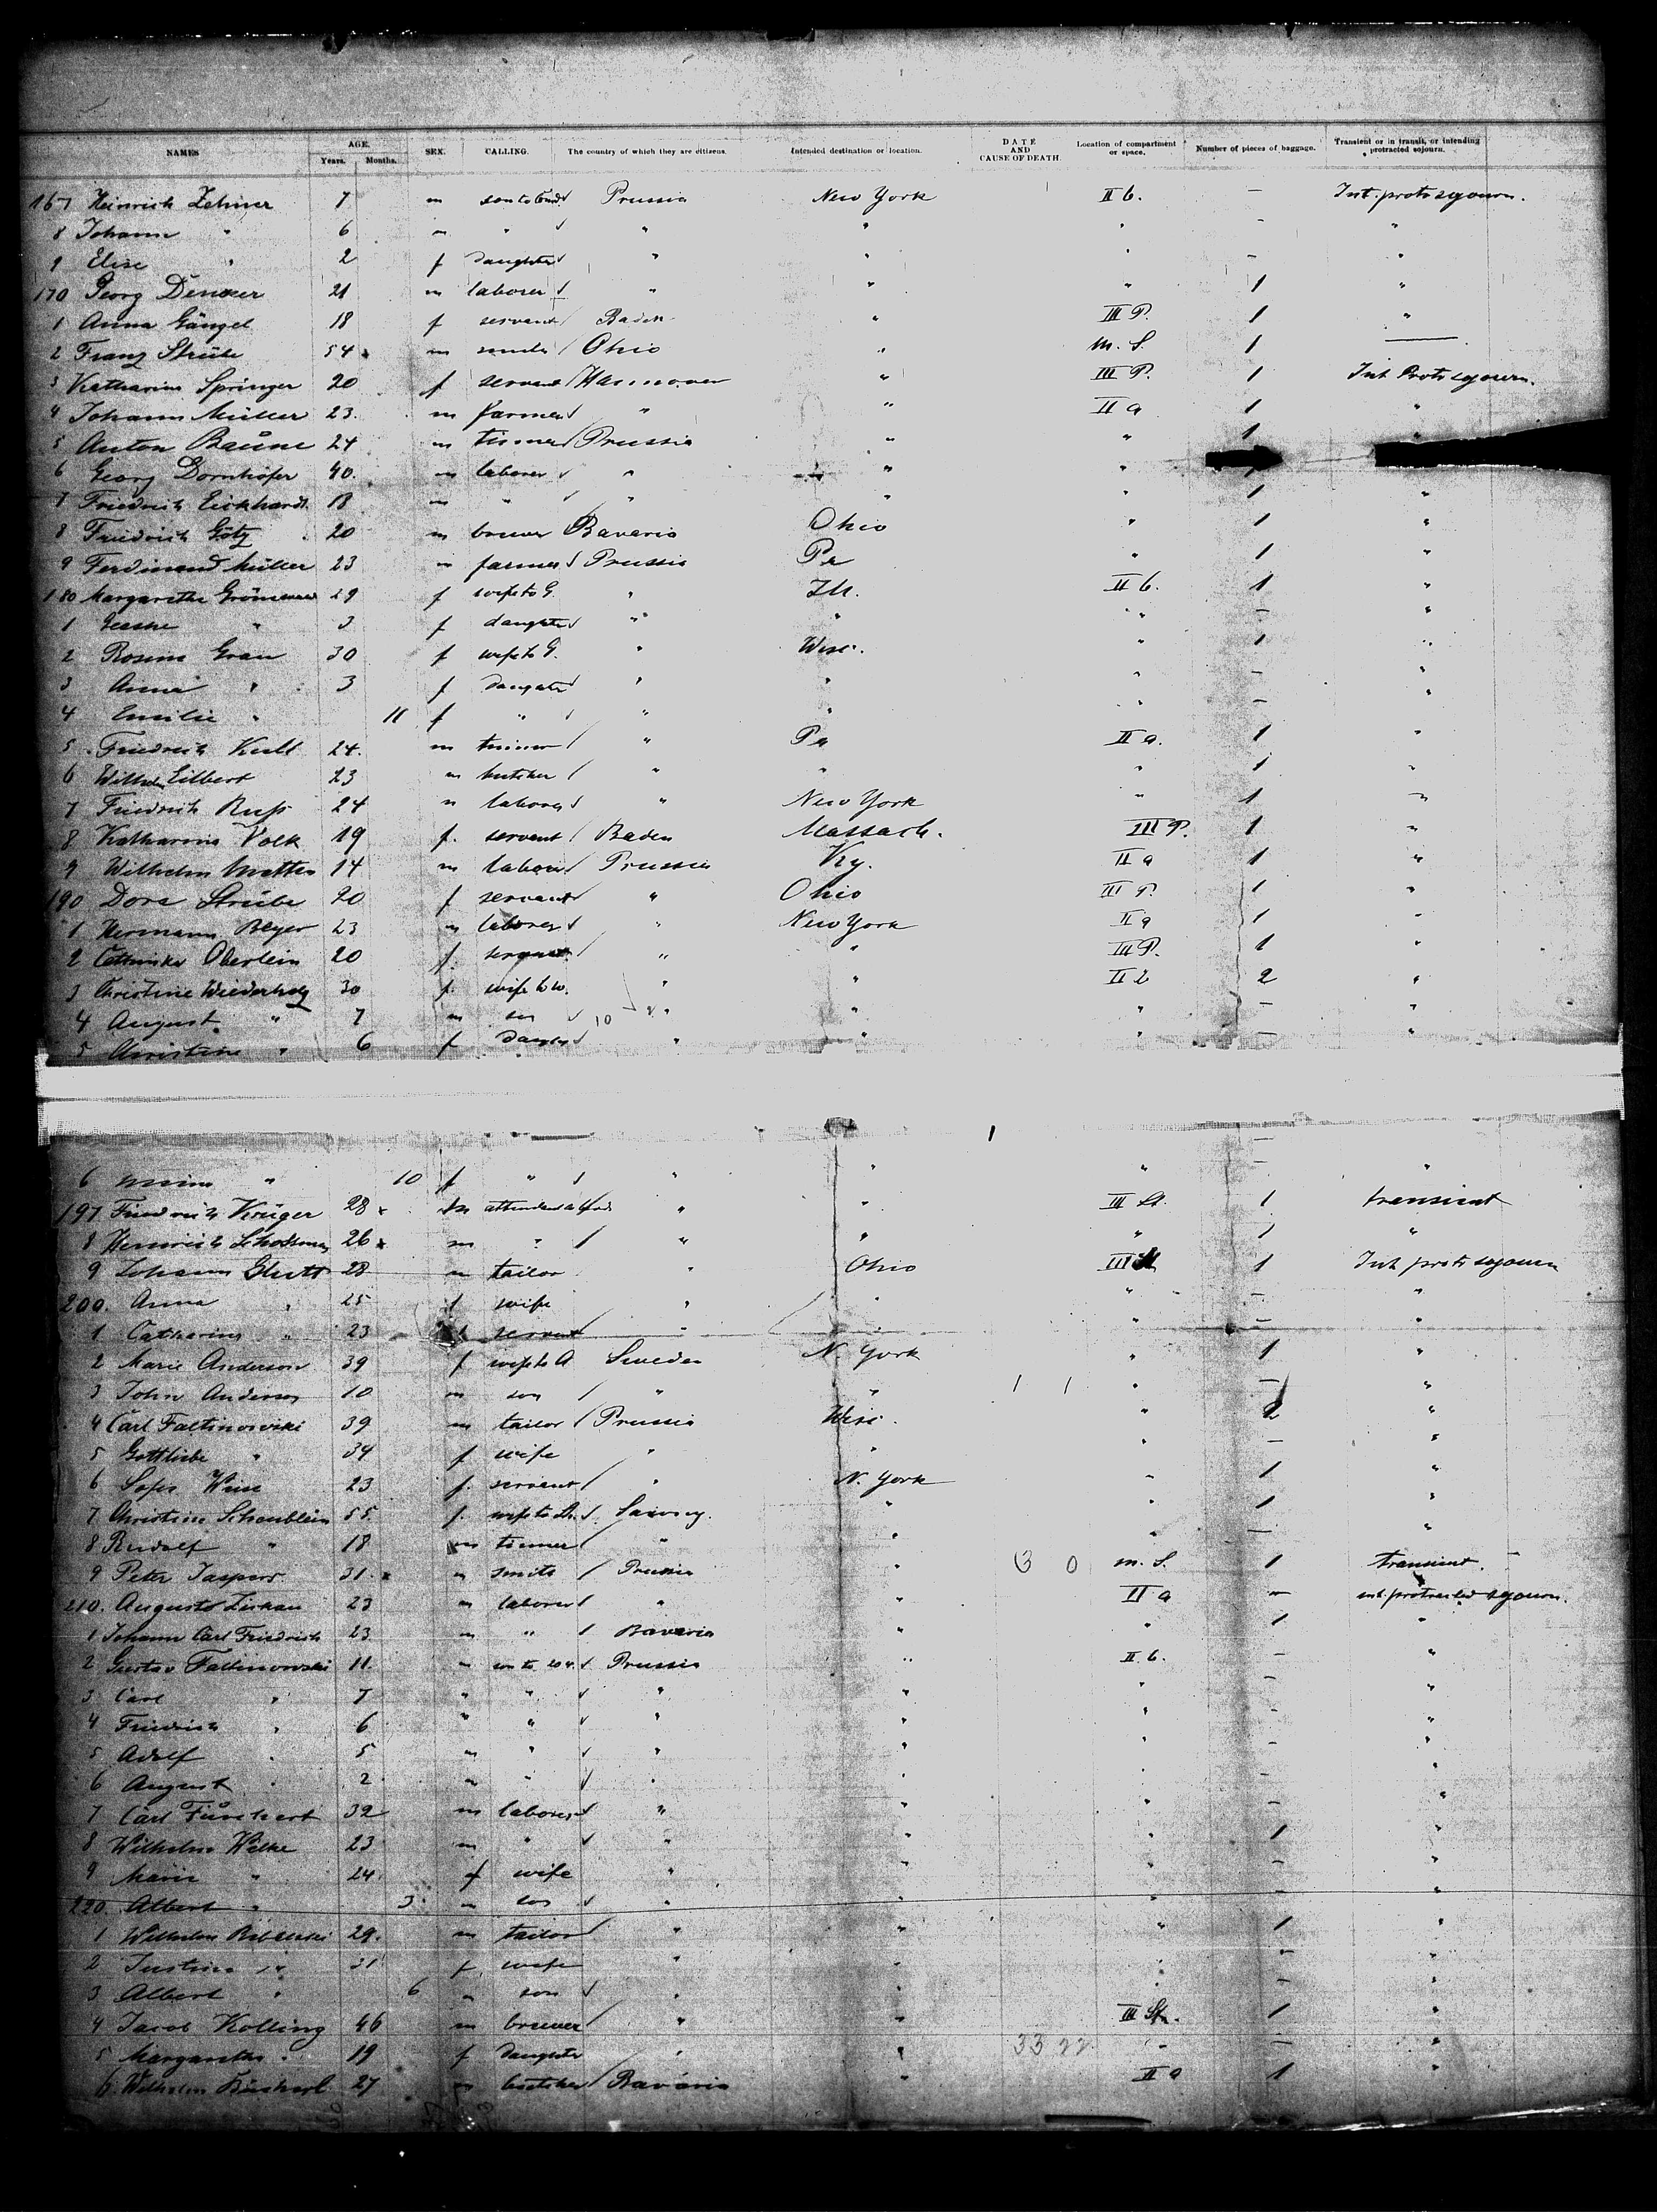 NAMES AGE. Years. Months. SEX. CALLING. The country of which they are citizens. Intended destination or location. DATE AND CAUSE OF DEATH. Location of compartment or space. Number of pieces of baggage. Transient or in transit, or intending protracted sojourn.
167 Heinrich Zehner 7 m son to Prussia New York II b. — Int. protr sojourn.
8 Johann " 6 m " " " " — "
9 Elise " 2 f daughter " " " — "
170 Georg 21 m laborer " " " 1 "
1 Anna Gängel 18 f servant Baden " III P. 1 "
2 Franz Strübe 54 m Ohio " m. S. 1 —
3 Katharina Springer 20 f servant Hannover " III P. 1 Int. Protr sojourn.
4 Johann Müller 23 m farmer " " II a 1 "
5 Anton Baŭne 24 m tinner Prussia " " 1 "
6 Georg Dornhöfer 40 m laborer " " "
7 Friedrich Eickhardt 18 m " " " " 1 "
8 Friedrich Götz 20 m brewer Bavaria Ohio " 1 "
9 Ferdinand Müller 23 m farmer Prussia Pa " 1 "
180 Margarethe 29 f wife to G. " Ill. II b. 1 "
1 " 3 f daughter " " " — "
2 Rosine Grau 30 f wife to G. " Wisc. " 1 "
3 Anna " 3 f daughter " " " — "
4 Emilie " 11 f " " " " —
5 Friedrich 24 m tinner " Pa II a. 1 "
6 Wilhelm Eilbert 23 m butcher " " " 1
7 Friedrich 24 m laborer " New York " 1 "
8 Katharina Volk 19 f. servant Baden Massach. III P. 1 "
9 Wilhelm 14 m laborer Prussia Ky. II a 1 "
190 Dora Strübe 20 f servant " Ohio III P. 1 "
1 Hermann Beyer 23 m laborer " New York II a 1 "
2 Oberlein 20 f. servant " " III P. 1 "
3 Christine Wiederholz 30 f. wife to W. " " II b 2 "
4 August " 7 m son 10 " " " — "
5 Christine " 6 f daughter " " " — "
6 " 10 f " " " " — "
197 Friedrich Krüger 28 m " " III St. 1 transient
8 Heinrich 26 m " " " " 1 "
9 Johann 28 m tailor " Ohio III St 1 Int. protr sojourn
200. Anna " 25 f wife " " " "
1 Catharina " 23 f servant " " — "
2 Marie Anderson 39 f wife to A Sweden N. York " 1 "
3 John Anderson 10 m son " " 1 1 " — "
4 Carl Faltinowski 39 m tailor Prussia Wisc. " 2 "
5 Gottliebe " 34 f wife " " " — "
6 23 f. servant " N. York " 1 "
7 Christine Schaublein 55. f. wife to Saxony. " " 1 "
8 Rudolf " 18 m tinner " " " — "
9 Peter Jaspers 31. m smith Prussia " 3 0 m. S. 1 transient.
210. 23 m laborer " " II a — int. protracted sojourn.
1 Johann Carl Friedrich 23 m " Bavaria " " 1 "
2 Gustav Faltinowski 11. m son to 204. Prussia " II b. — "
3 Carl " 7 " " " " " — "
4 Friedrich " 6 " " " " " — "
5 Adolf " 5 m " " " " — "
6 August " 2 m " " " " — "
7 Carl 32 m laborer " " " — "
8 Wilhelm Wilke 23 m " " " " 1 "
9 Marie " 24. f wife " " " — "
220. Albert " 3. m son " " " — "
1 Wilhelm 29. m tailor " " " 1 "
2 Justine " 31 f. wife " " " — "
3 Albert " 6 m son " " " — "
4 Jacob Kolling 46 m brewer " " III St. 1 "
5 Margarethe " 19 f daughter " " 33 22 " — "
6 Wilhelm 27 m butcher Bavaria " II a 1 "